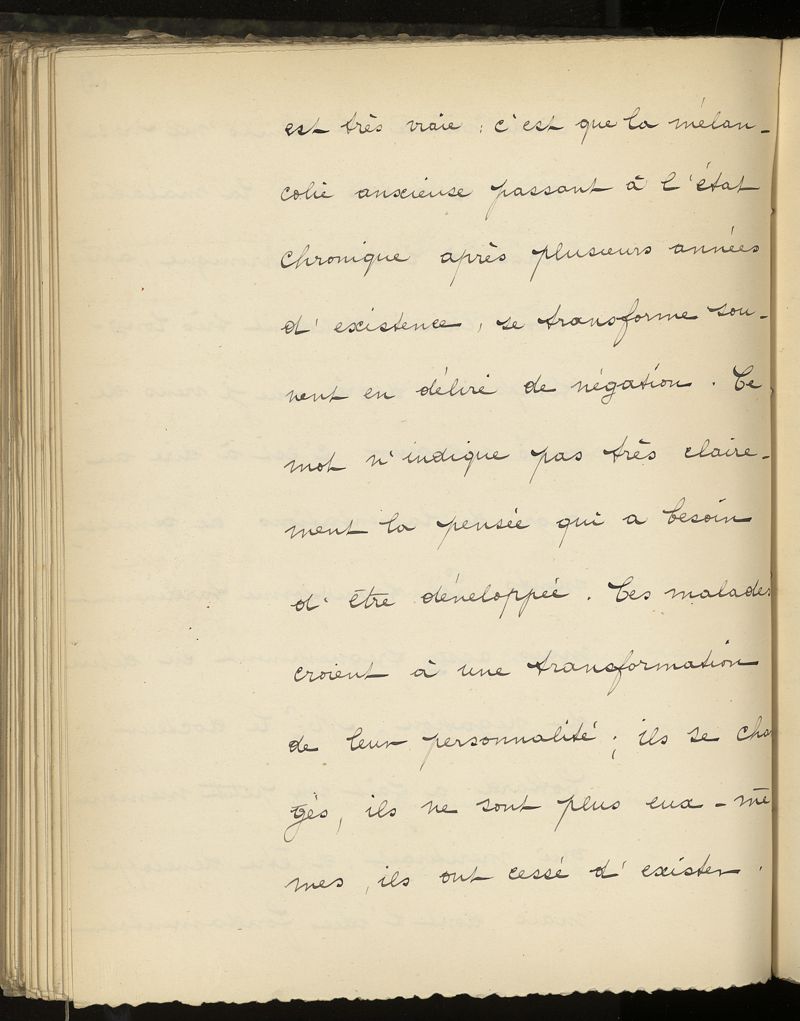 est très vraie : c'est que la mélan-
colie anxieuse passant à l'état
chronique après plusieurs années
d'existence, se transforme sou-
vent en délire de négation. Ce
mot n'indique pas très claire-
ment la pensée qui a besoin
d'être développée. Ces malades
croient à une transformation
de leur personnalité ; ils se cha
gés, ils ne sont plus eux-mê
mes, ils ont cessé d'exister.